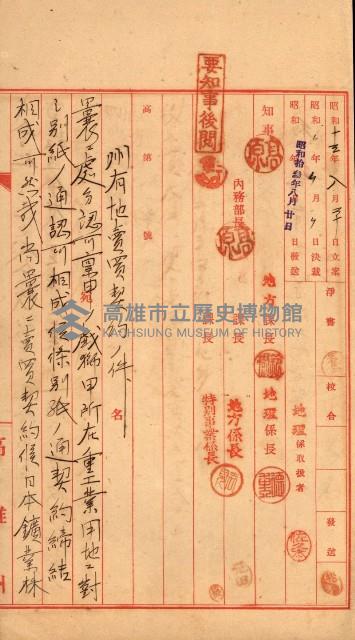 昭和十三年八月 日立案
昭和 年 月 日決裁
昭和 年 月 日發送
昭和拾叁年八月廿日
淨書
校合
發送
要知事後閱
知事
內務部長
地方課長
課長
課長
地理係長
地方係長
特別事業係長
地理係取扱者
高第 號
宛 名
州有地賣買契約ノ件
曩ニ處分認可稟申ノ戲獅甲所在重工業用地ニ對
シ別紙ノ通認可相成候條別紙ノ通契約締結
相成可然哉尚曩ニ賣買契約候日本鑛業株
高雄州
高雄市立歷史博物館
KAOHSIUNG MUSEUM OF HISTORY